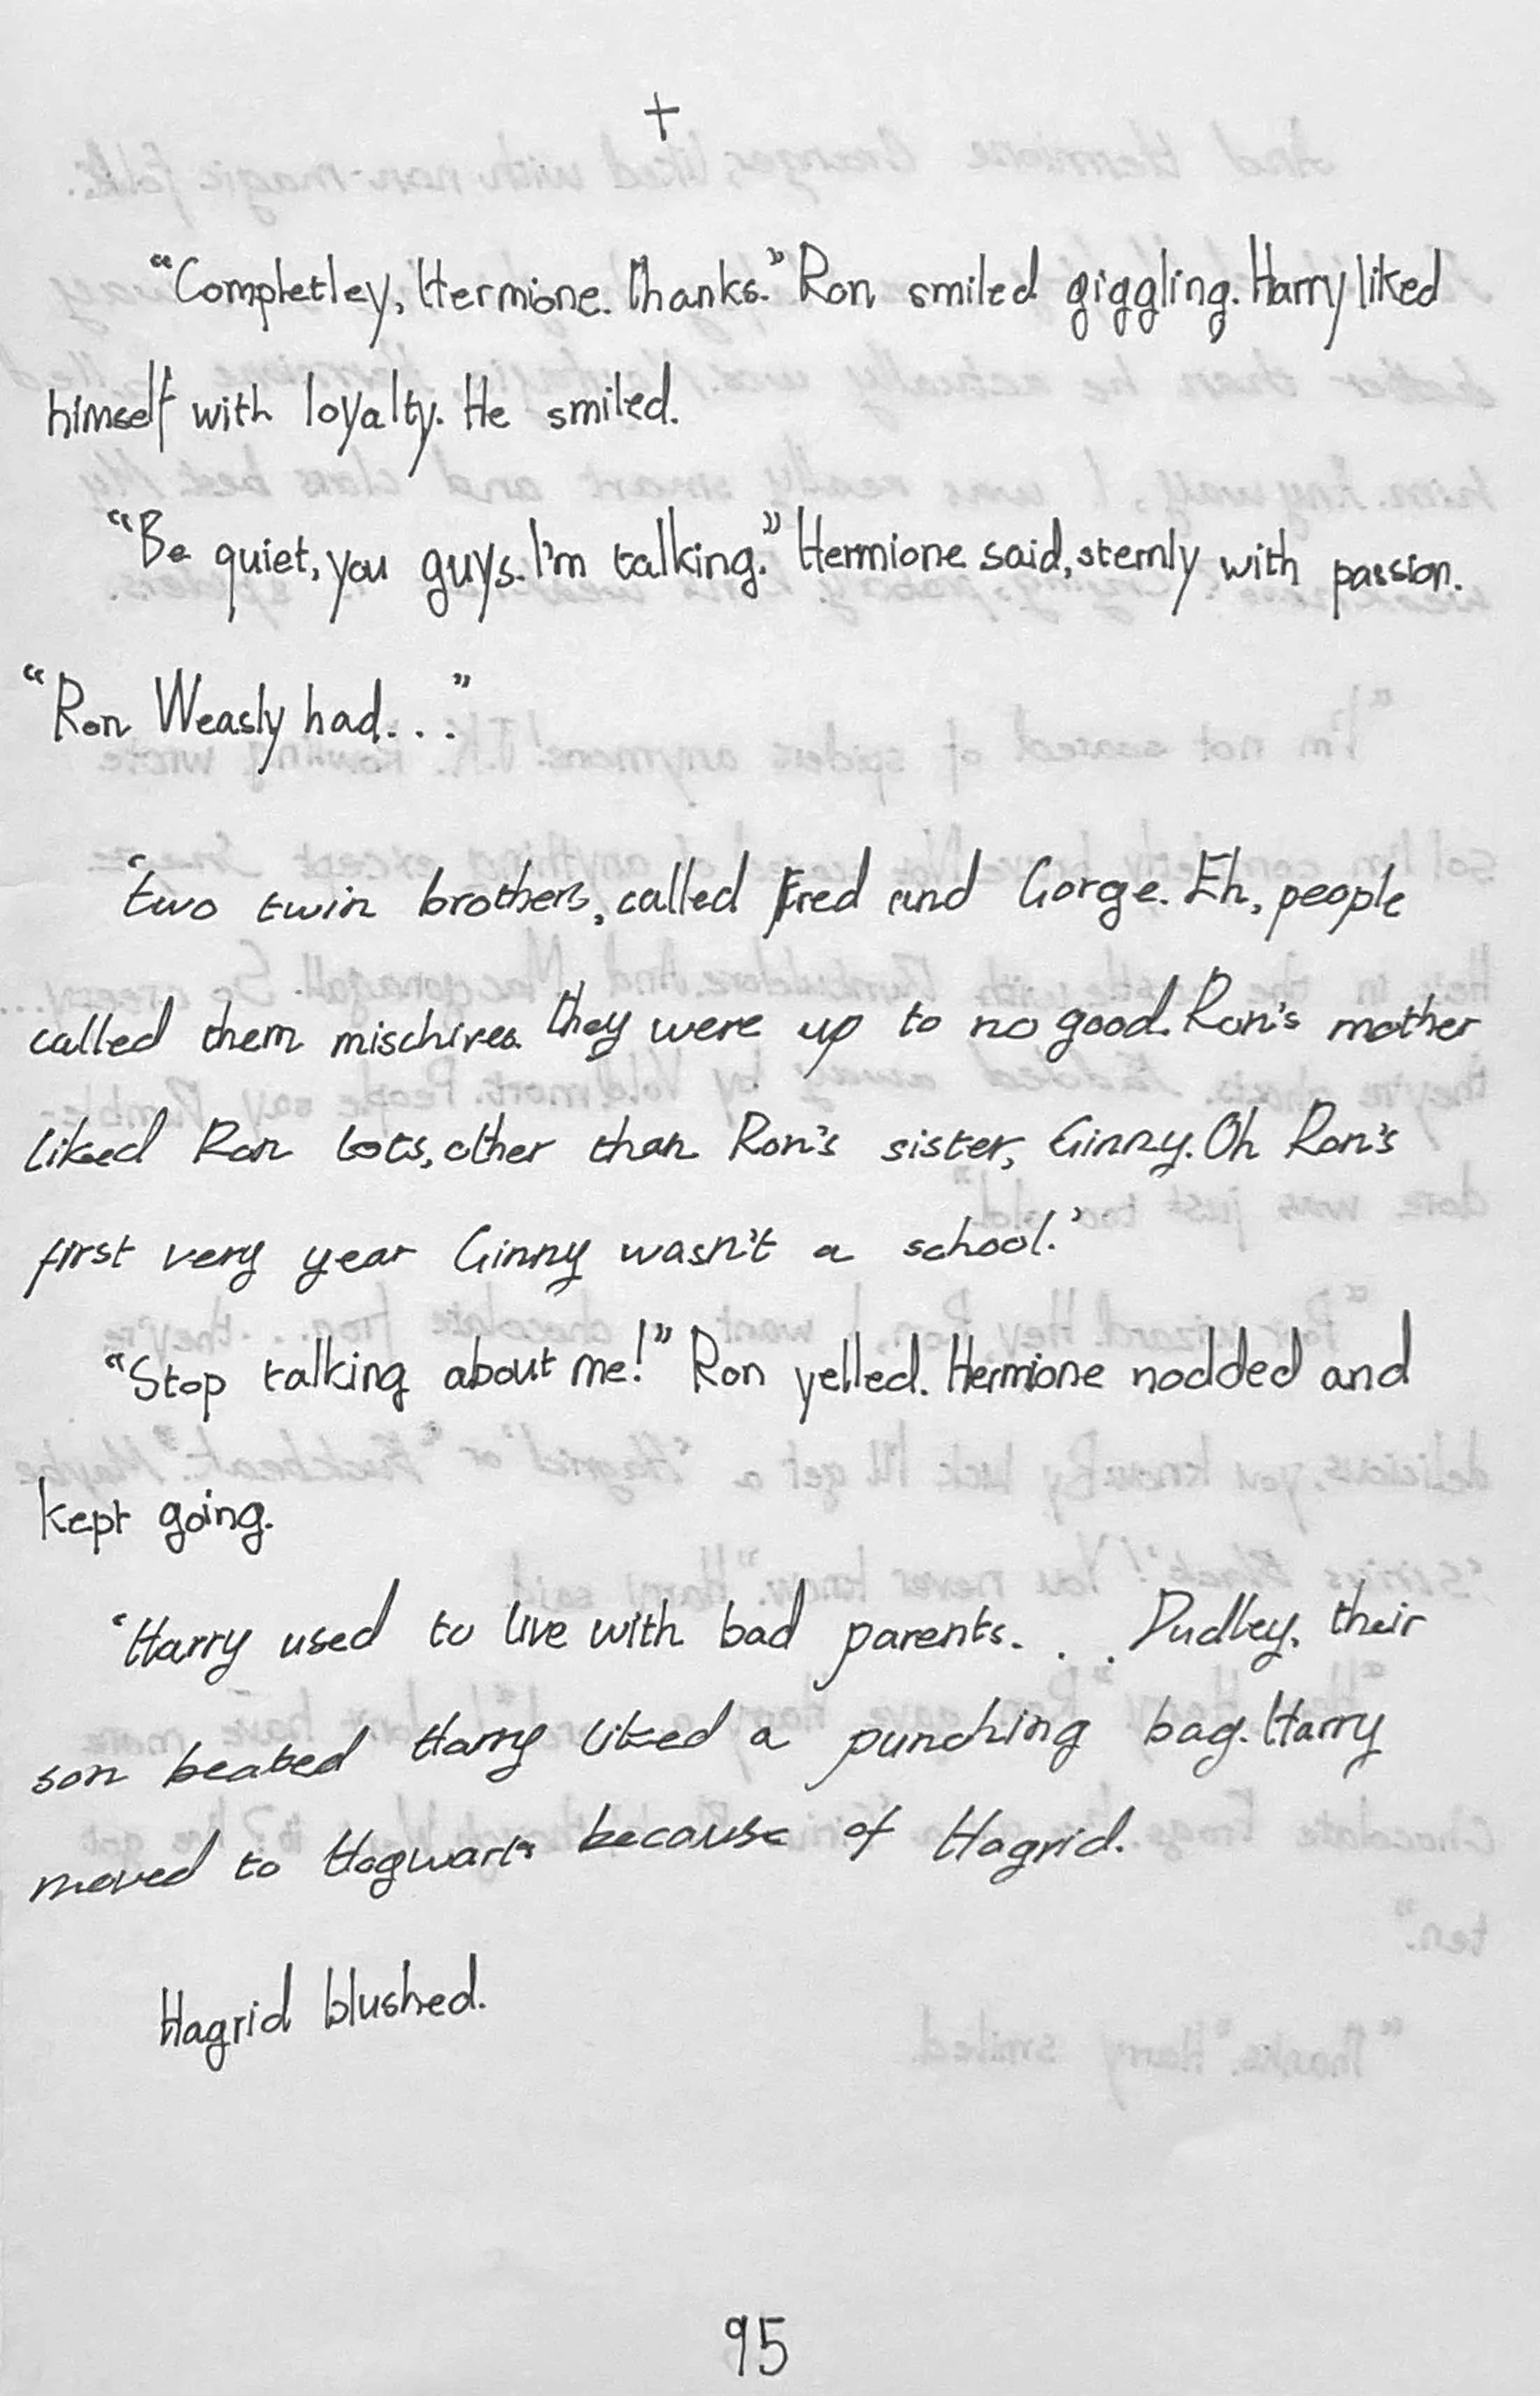 +
“Completley, Hermione. Thanks.” Ron smiled giggling. Harry liked
himself with loyalty. He smiled.
“Be quiet, you guys. I'm talking.” Hermione said, sternly with passion.
“Ron Weasly had...”
‘two twin brothers, called Fred and Gorge. Eh, people
called them mischives. They were up to no good. Ron's mother
liked Ron lots, other than Ron's sister, Ginny. Oh Ron's
first very year Ginny wasn't a school.’
“Stop talking about me!” Ron yelled. Hermione nodded and
kept going.
‘Harry used to live with bad parents... Dudley, their
son beated Harry liked a punching bag. Harry
moved to Hogwarts because of Hagrid.
Hagrid blushed.
95